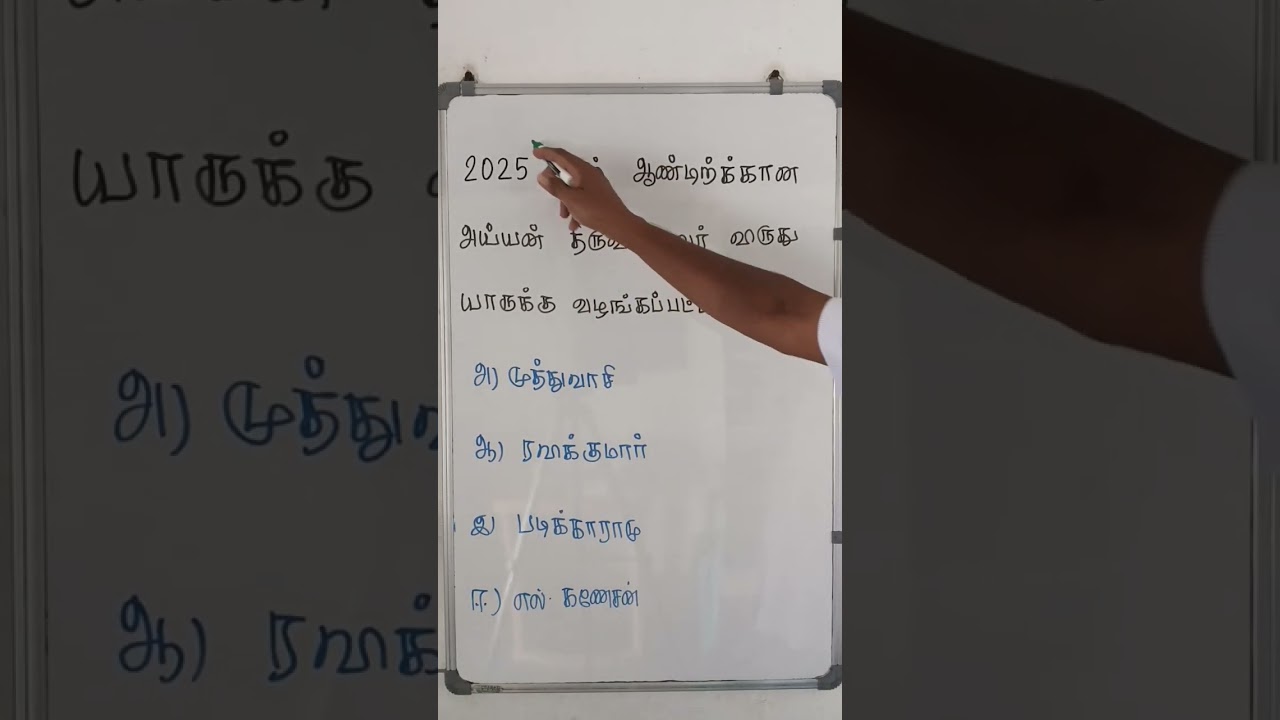 2025 ஆண்டிற்க்கான
அய்யன் விருது
யாருக்கு
அ) முத்துவாசி
ஆ) ரவிக்குமார்
இ படிக்காராமு
ஈ) எல். கணேசன்